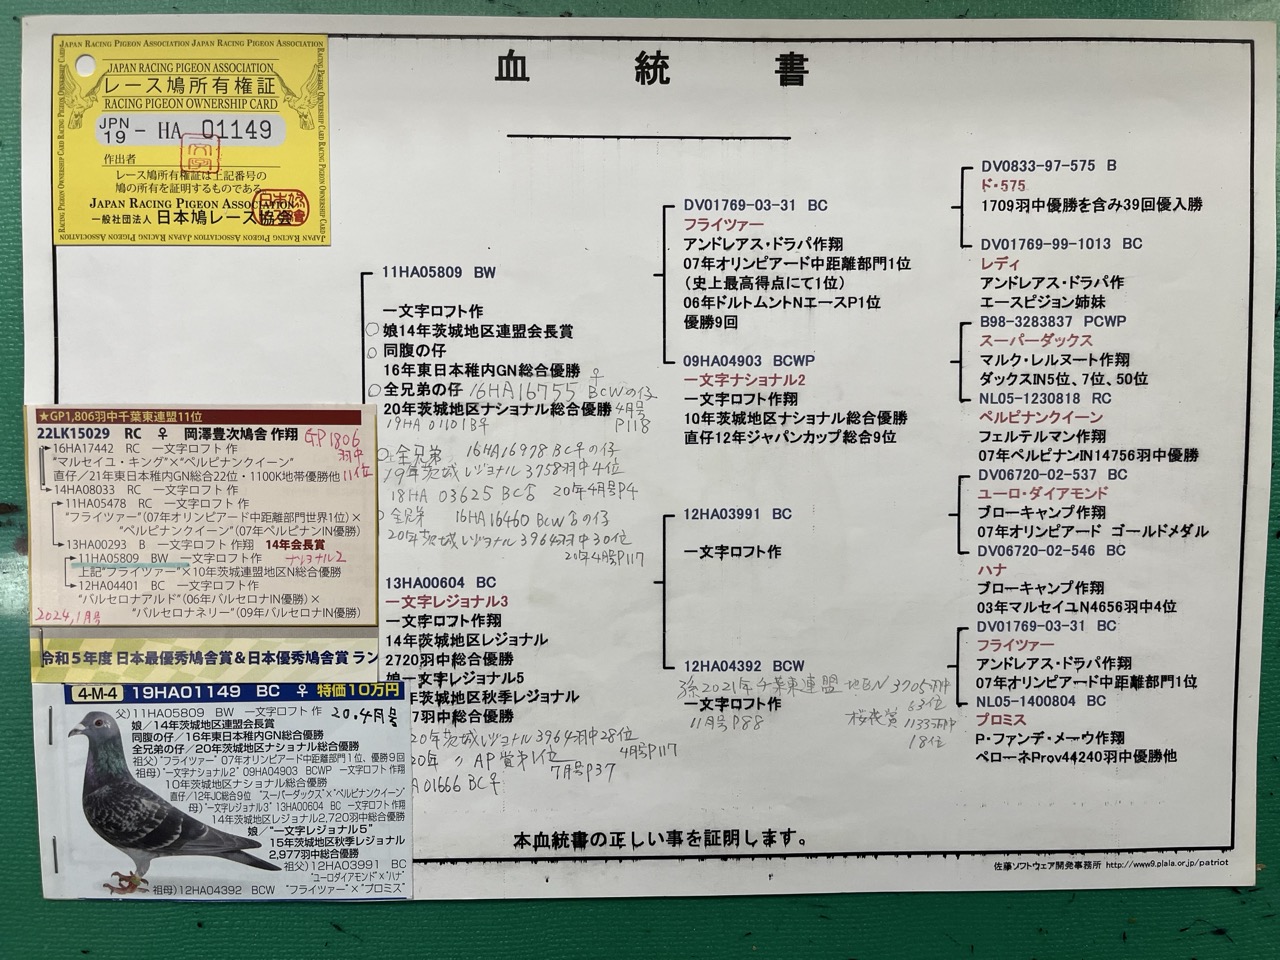 血 統 書
JAPAN RACING PIGEON ASSOCIATION JAPAN RACING PIGEON ASSOCIATION
JAPAN RACING PIGEON ASSOCIATION
レース鳩所有権証
RACING PIGEON OWNERSHIP CARD
JPN 19 - HA 01149
作出者
レース鳩所有権証は上記番号の
鳩の所有を証明するものである。
JAPAN RACING PIGEON ASSOCIATION
一般社団法人 日本鳩レース協会
11HA05809 BW
一文字ロフト作
○娘14年茨城地区連盟会長賞
○同腹の仔
16年東日本稚内GN総合優勝 ♀
○全兄弟の仔 16HA16755 BCWの仔
20年茨城地区ナショナル総合優勝 4月号
19HA 01101 B♀ P118
全兄弟 16HA16978 BC♀の仔
19年茨城レジョナル3758羽中4位
18HA 03625 BC♂ 20年4月号P4
全兄弟 16HA16460 BCW♂の仔
20年茨城レジョナル3964羽中30位
20年4月号P117
13HA00604 BC
一文字レジョナル3
一文字ロフト作翔
14年茨城地区レジョナル
2720羽中総合優勝
娘一文字レジョナル5
年茨城地区秋季レジョナル
7羽中総合優勝
20年茨城レジョナル3964羽中28位
4月号P117
20年 〃 AP賞第1位
7月号P37
A01666 BC♀
DV01769-03-31 BC
フライツァー
アンドレアス・ドラパ作翔
07年オリンピアード中距離部門1位
(史上最高得点にて1位)
06年ドルトムントNエースP1位
優勝9回
09HA04903 BCWP
一文字ナショナル2
一文字ロフト作翔
10年茨城地区ナショナル総合優勝
直仔12年ジャパンカップ総合9位
12HA03991 BC
一文字ロフト作
12HA04392 BCW
孫2021年千葉東連盟 地区N 3705羽中
63位
一文字ロフト作
11月号P88
桜花賞 1133羽中
18位
DV0833-97-575 B
ド・575
1709羽中優勝を含み39回優入勝
DV01769-99-1013 BC
レディ
アンドレアス・ドラパ作
エースピジョン姉妹
B98-3283837 PCWP
スーパーダックス
マルク・レルヌート作翔
ダックスIN5位、7位、50位
NL05-1230818 RC
ペルピナンクイーン
フェルテルマン作翔
07年ペルピナンIN14756羽中優勝
DV06720-02-537 BC
ユーロ・ダイアモンド
ブローキャンプ作翔
07年オリンピアード ゴールドメダル
DV06720-02-546 BC
ハナ
ブローキャンプ作翔
03年マルセイユN4656羽中4位
DV01769-03-31 BC
フライツァー
アンドレアス・ドラパ作翔
07年オリンピアード中距離部門1位
NL05-1400804 BC
プロミス
P・ファンデ・メーウ作翔
ペローネProv44240羽中優勝他
本血統書の正しい事を証明します。
佐藤ソフトウェア開発事務所 http://www9.plala.or.jp/patriot
★GP1,806羽中千葉東連盟11位
22LK15029 RC ♀ 岡澤豊次鳩舎 作翔
GP1806
羽中
11位
16HA17442 RC 一文字ロフト作
“マルセイユ・キング”×“ペルピナンクイーン”
直仔/21年東日本稚内GN総合22位・1100K地帯優勝他
14HA08033 RC 一文字ロフト作
11HA05478 RC 一文字ロフト作
“フライツァー”(07年オリンピアード中距離部門世界1位)×
“ペルピナンクイーン”(07年ペルピナンIN優勝)
13HA00293 B 一文字ロフト作翔 14年会長賞
11HA05809 BW 一文字ロフト作 ナショナル2
上記“フライツァー”×10年茨城連盟地区N総合優勝
12HA04401 BC 一文字ロフト作
“バルセロナアルド”(06年バルセロナIN優勝)×
“バルセロナネリー”(09年バルセロナIN優勝)
2024,1月号
令和5年度 日本最優秀鳩舎賞&日本優秀鳩舎賞 ラン
4-M-4 19HA01149 BC ♀ 特価10万円
父)11HA05809 BW 一文字ロフト作 20.4月号
娘/14年茨城地区連盟会長賞
同腹の仔/16年東日本稚内GN総合優勝
全兄弟の仔/20年茨城地区ナショナル総合優勝
祖父)“フライツァー” 07年オリンピアード中距離部門1位、優勝9回
祖母)“一文字ナショナル2” 09HA04903 BCWP 一文字ロフト作翔
10年茨城地区ナショナル総合優勝
直仔/12年JC総合9位 “スーパーダックス”×“ペルピナンクイーン”
母)“一文字レジョナル3” 13HA00604 BC 一文字ロフト作翔
14年茨城地区レジョナル2,720羽中総合優勝
娘/“一文字レジョナル5”
15年茨城地区秋季レジョナル
2,977羽中総合優勝
祖父)12HA03991 BC
“ユーロダイアモンド”×“ハナ”
祖母)12HA04392 BCW “フライツァー”×“プロミス”